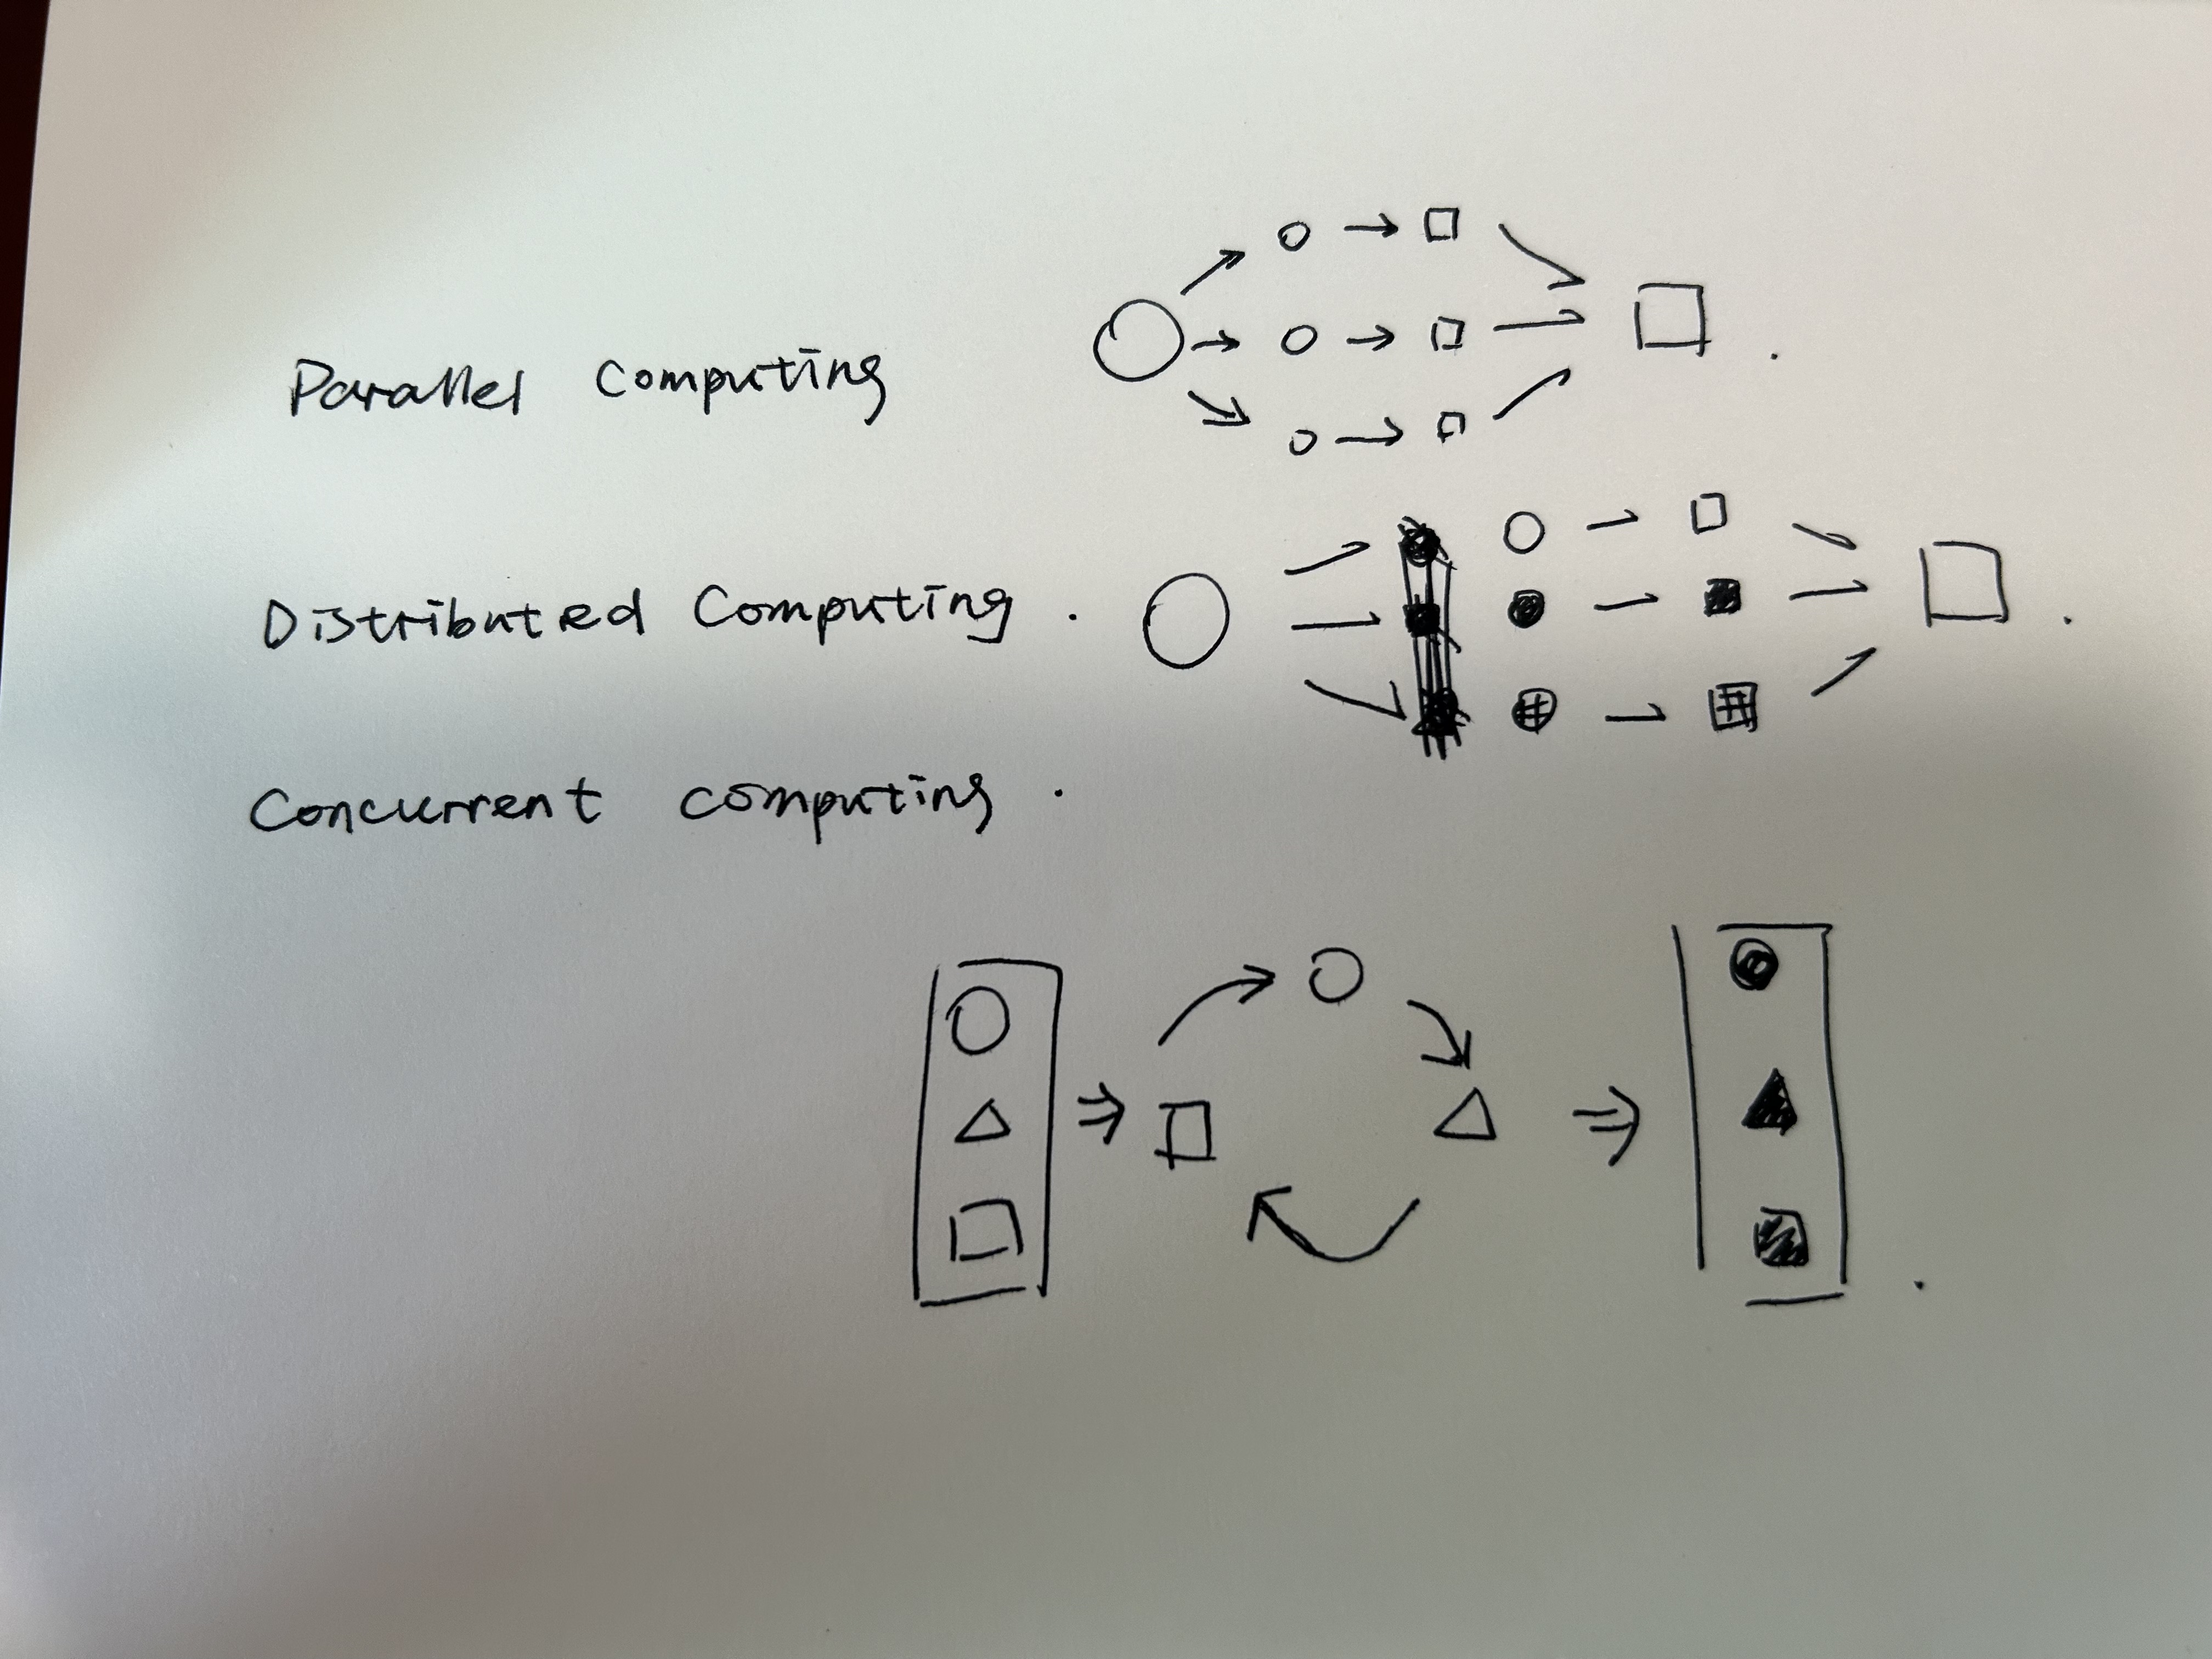 Parallel Computing
Distributed Computing.
Concurrent computing.